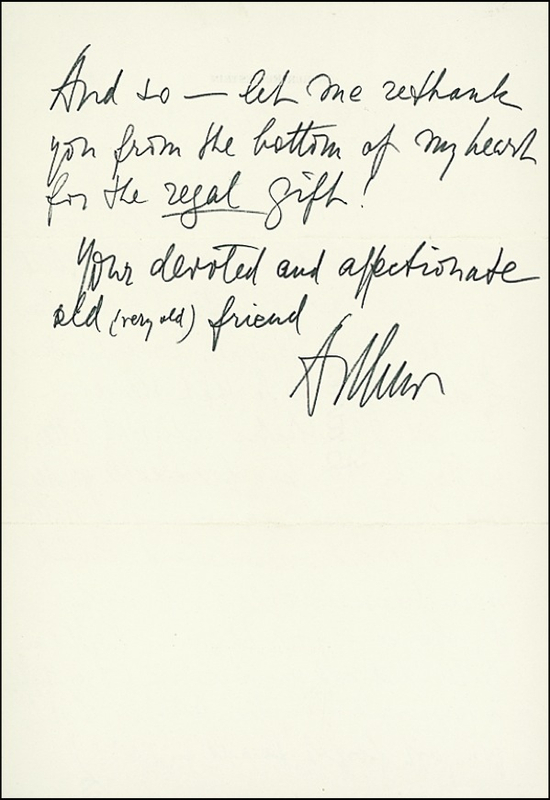 And so — let me rethank
you from the bottom of my heart
for the regal gift!
Your devoted and affectionate
old (very old) friend
Arthur